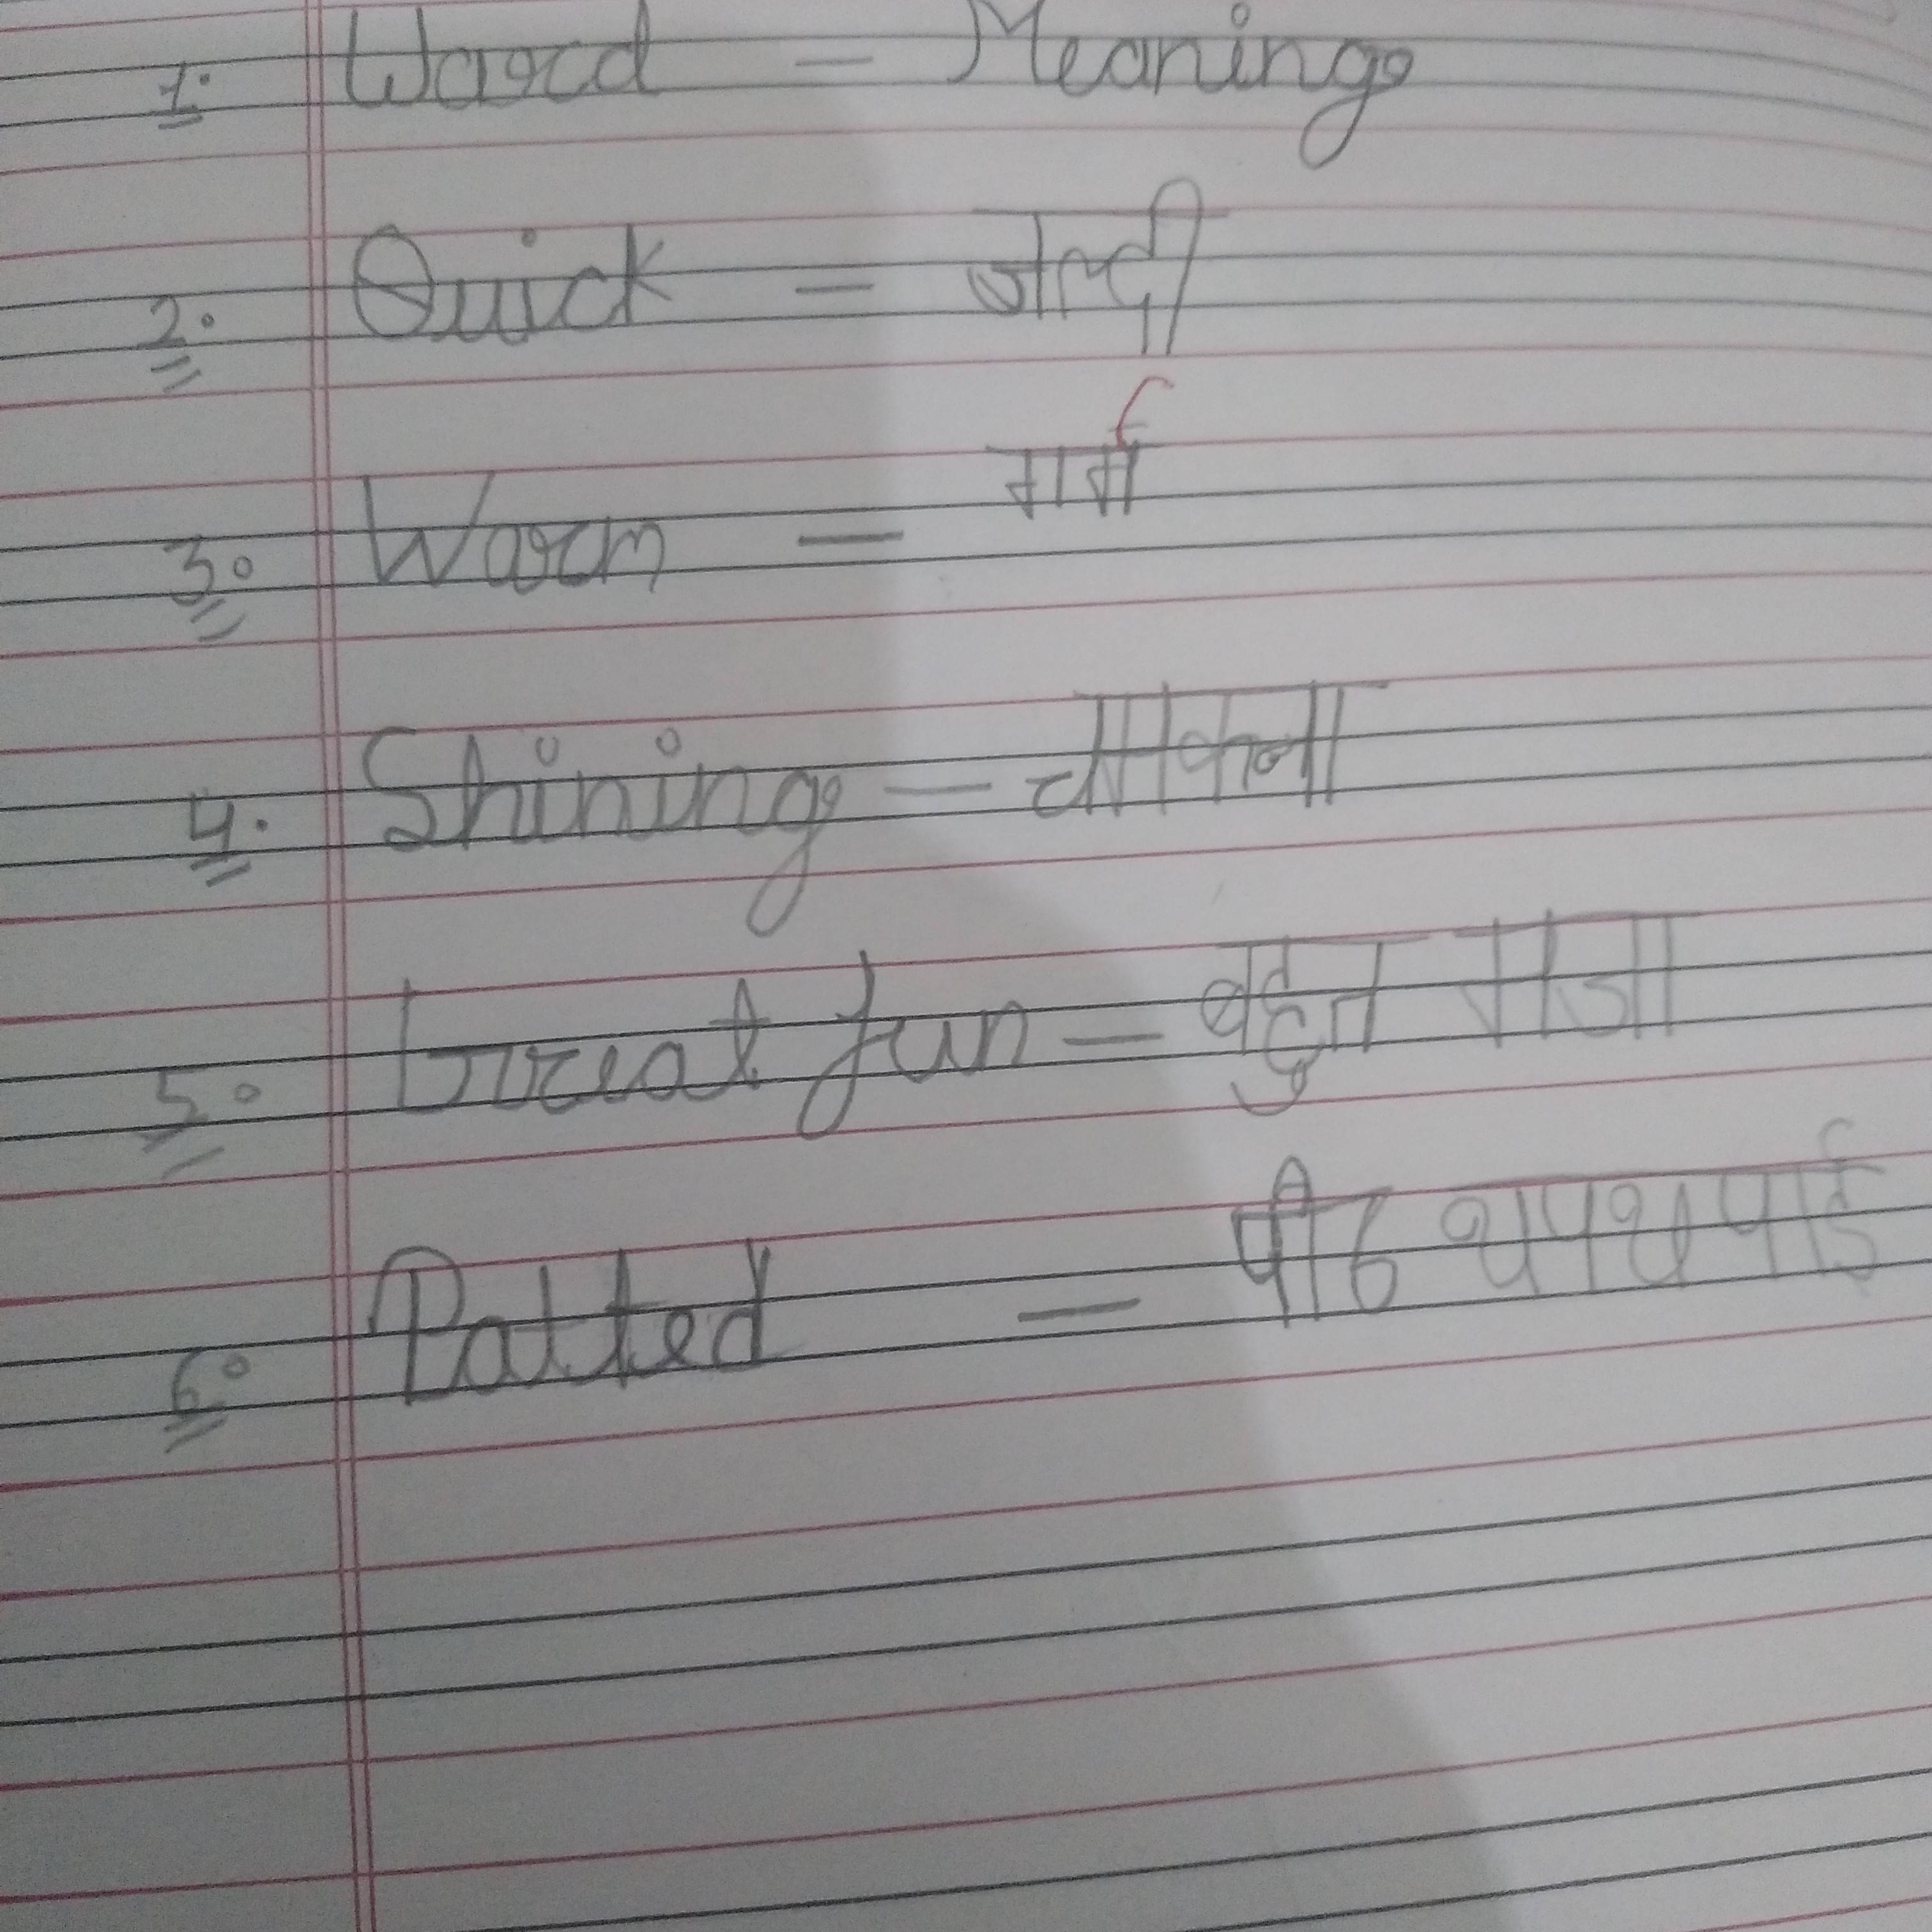 1. Word - Meaning
2. Quick = जल्दी
3. Warm - गर्म
4. Shining - चमकना
5. Great fun - बहुत मजा
6. Patted - पीठ थपथपाई